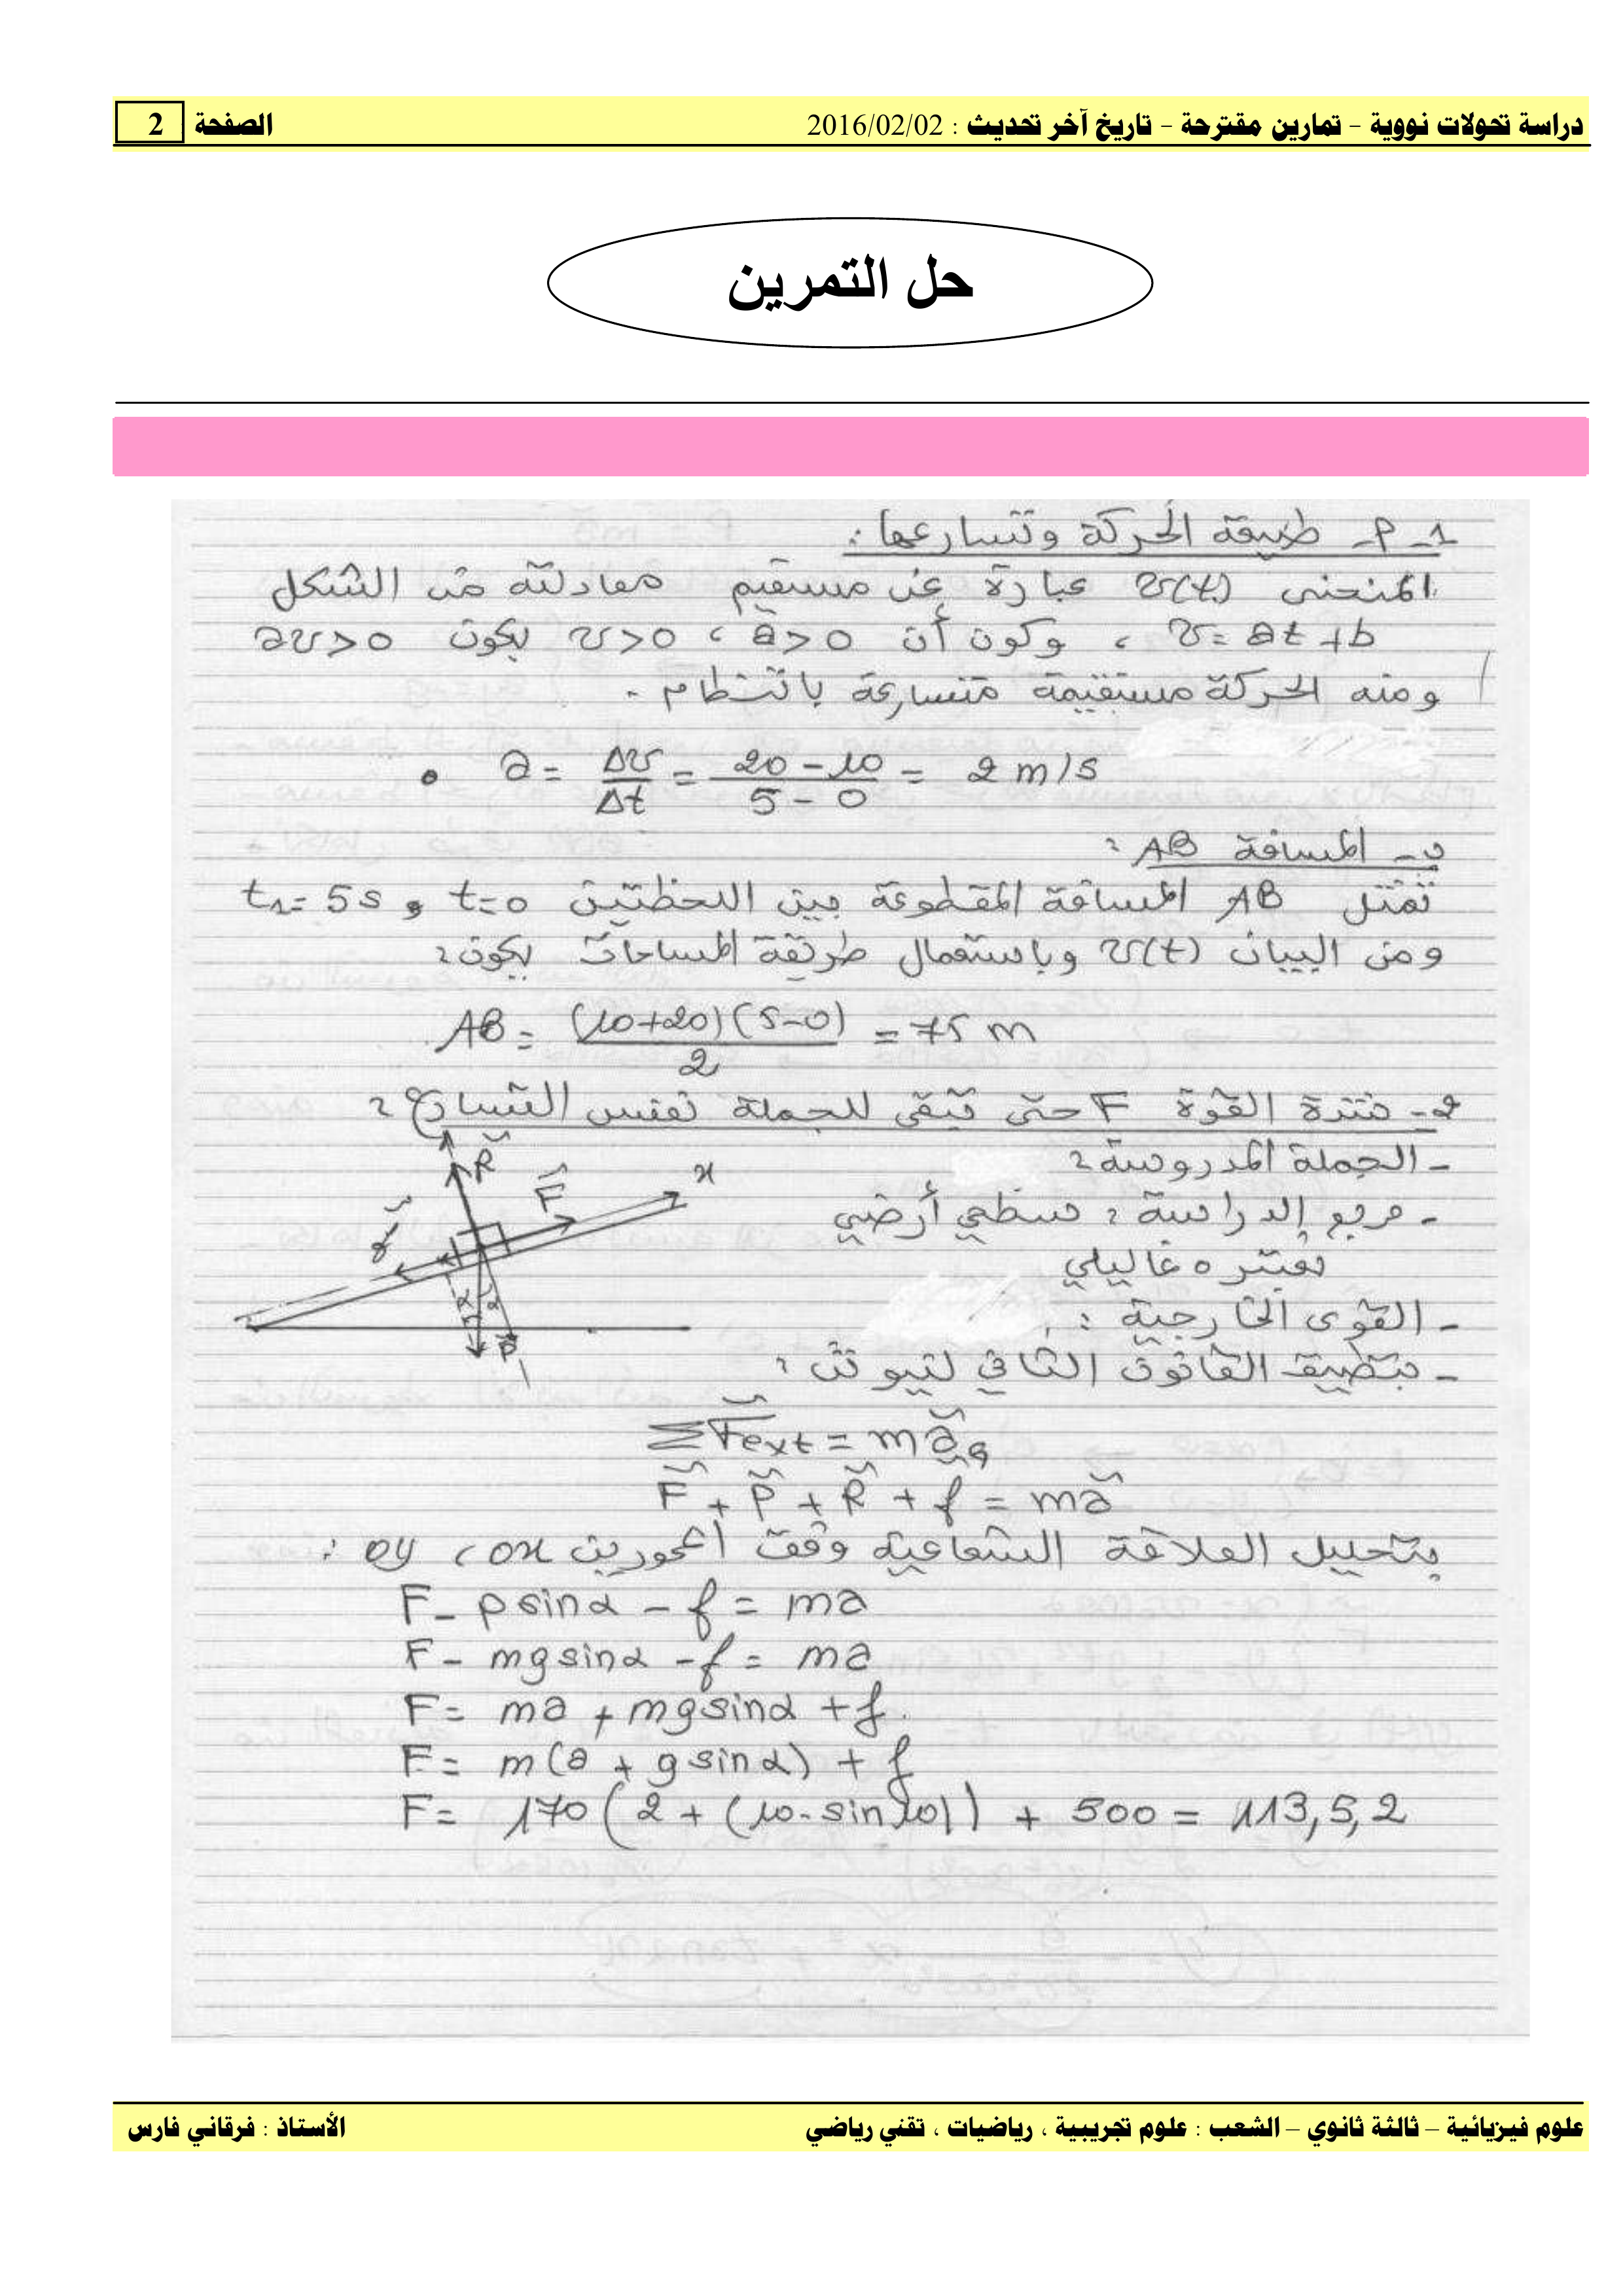 دراسة تحولات نووية - تمارين مقترحة - تاريخ آخر تحديث : 2016/02/02
الصفحة 2
حل التمرين
1-أ- طبيعة الحركة وتسارعها :
المنحنى v(t) عبارة عن مستقيم معادلته من الشكل
v = at + b ، وكون أن a > 0 ، v > 0 يكون av > 0
ومنه الحركة مستقيمة متسارعة بانتظام .
• a = Δv/Δt = (20 - 10)/(5 - 0) = 2 m/s
ب- المسافة AB :
تمثل AB المسافة المقطوعة بين اللحظتين t=0 و t1=5s
ومن البيان v(t) وباستعمال طريقة المساحات يكون :
AB = (10+20)(5-0)/2 = 75 m
2- شدة القوة F حتى تبقى للجملة نفس التسارع :
- الجملة المدروسة :
- مرجع الدراسة : سطحي أرضي
نعتبره غاليلي
- القوى الخارجية :
- بتطبيق القانون الثاني لنيوتن :
R
F
x
f
α
α
P
ΣFext = m aG
F + P + R + f = ma
بتحليل العلاقة الشعاعية وفق المحورين ox ، oy :
F - P sinα - f = ma
F - mg sinα - f = ma
F = ma + mg sinα + f.
F = m(a + g sinα) + f
F = 170(2 + (10 . sin10)) + 500 = 113,5,2
علوم فيزيائية – ثالثة ثانوي – الشعب : علوم تجريبية ، رياضيات ، تقني رياضي
الأستاذ : فرقاني فارس